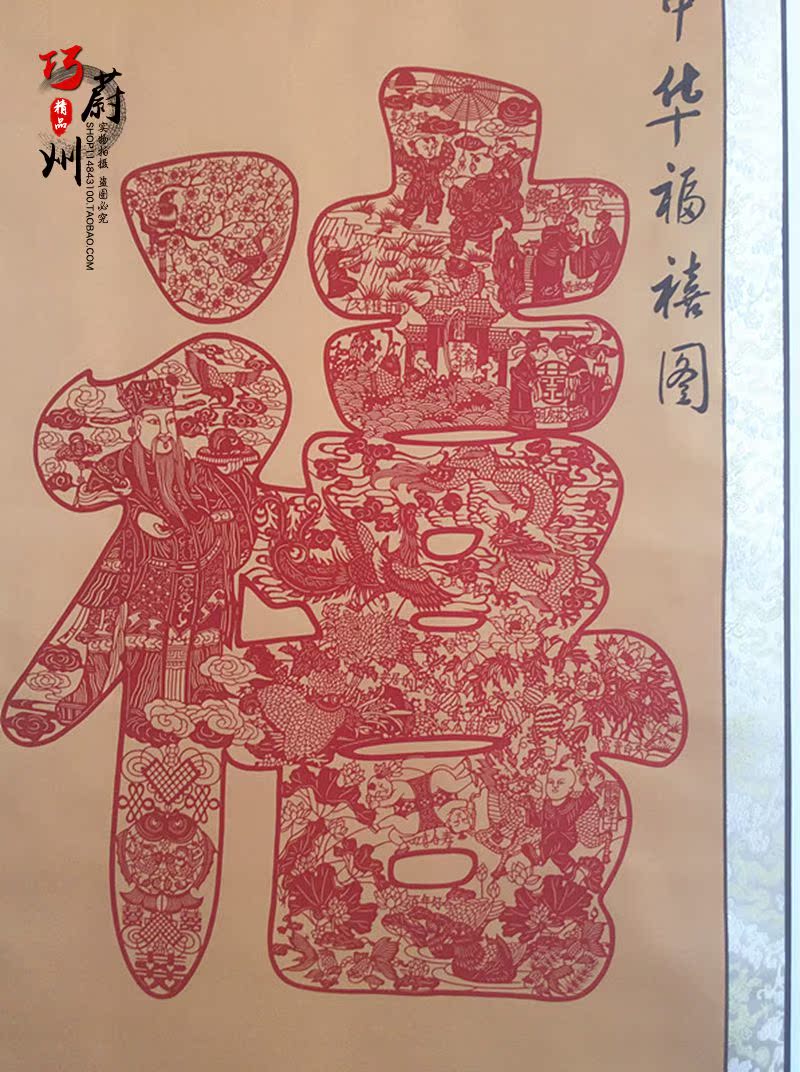 巧蔚州
精品
实物拍摄 盗图必究
SHOP114843100.TAOBAO.COM
中华福禧图
禧